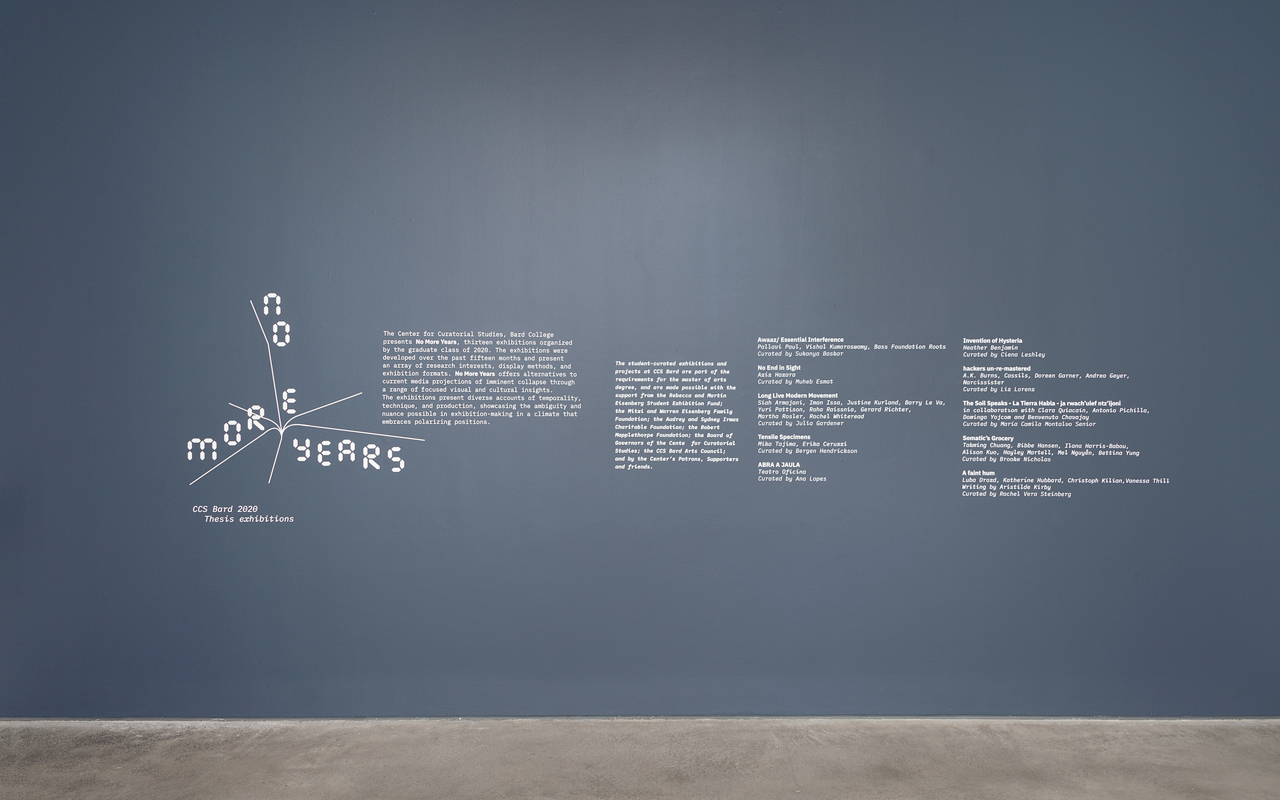 no
MORE
YEARS
CCS Bard 2020
Thesis exhibitions
The Center for Curatorial Studies, Bard College
presents No More Years, thirteen exhibitions organized
by the graduate class of 2020. The exhibitions were
developed over the past fifteen months and present
an array of research interests, display methods, and
exhibition formats. No More Years offers alternatives to
current media projections of imminent collapse through
a range of focused visual and cultural insights.
The exhibitions present diverse accounts of temporality,
technique, and production, showcasing the ambiguity and
nuance possible in exhibition-making in a climate that
embraces polarizing positions.
The student-curated exhibitions and
projects at CCS Bard are part of the
requirements for the master of arts
degree, and are made possible with the
support from the Rebecca and Martin
Eisenberg Student Exhibition Fund;
the Mitzi and Warren Eisenberg Family
Foundation; the Audrey and Sydney Irmas
Charitable Foundation; the Robert
Mapplethorpe Foundation; the Board of
Governors of the Cente for Curatorial
Studies; the CCS Bard Arts Council;
and by the Center's Patrons, Supporters
and friends.
Awaaz/ Essential Interference
Pallavi Paul, Vishal Kumaraswamy, Bass Foundation Roots
Curated by Sukanya Baskar
No End in Sight
Aziz Hazara
Curated by Muheb Esmat
Long Live Modern Movement
Siah Armajani, Iman Issa, Justine Kurland, Barry Le Va,
Yuri Pattison, Raha Raissnia, Gerard Richter,
Martha Rosler, Rachel Whiteread
Curated by Julia Gardener
Tensile Specimens
Mika Tajima, Erika Ceruzzi
Curated by Bergen Hendrickson
ABRA A JAULA
Teatro Oficina
Curated by Ana Lopes
Invention of Hysteria
Heather Benjamin
Curated by Ciena Leshley
hackers un-re-mastered
A.K. Burns, Cassils, Doreen Garner, Andrea Geyer,
Narcissister
Curated by Lia Lorena
The Soil Speaks - La Tierra Habla - ja rwach'ulef ntz'ijoni
in collaboration with Clara Quiacain, Antonio Pichilla,
Domingo Yojcom and Benvenuto Chavajay
Curated by Maria Camila Montalvo Senior
Somatic's Grocery
Takming Chuang, Bibbe Hansen, Ilana Harris-Babou,
Alison Kuo, Hayley Martell, Mai Nguyễn, Bettina Yung
Curated by Brooke Nicholas
A faint hum
Luba Drozd, Katherine Hubbard, Christoph Kilian,Vanessa Thill
Writing by Aristilde Kirby
Curated by Rachel Vera Steinberg